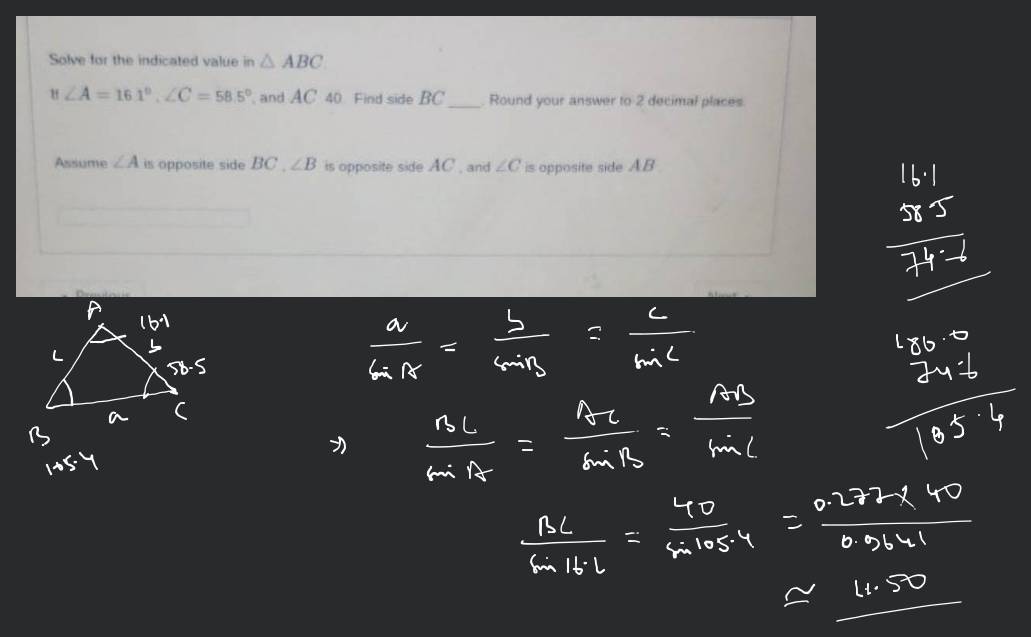 Solve for the indicated value in △ ABC.
If ∠A = 16.1⁰, ∠C = 58.5⁰, and AC 40. Find side BC ____. Round your answer to 2 decimal places.
Assume ∠A is opposite side BC, ∠B is opposite side AC, and ∠C is opposite side AB.
16.1
58.5
74.6
180.0
74.6
105.4
A
16.1
b
58.5
a
C
B
105.4
a/sin A = b/sin B = c/sin C
⇒ BC/sin A = AC/sin B = AB/sin C
BC/sin 16.1 = 40/sin 105.4 = 0.277 × 40/0.9641
≃ 11.50